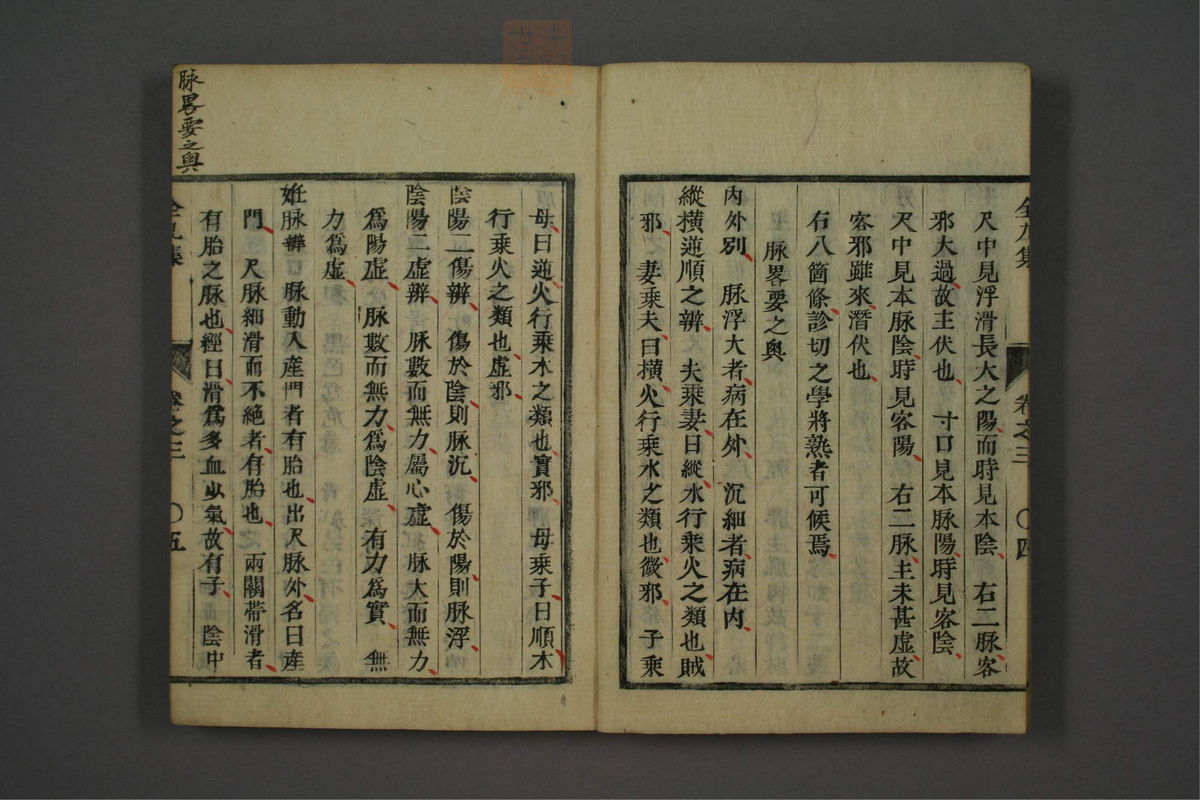 尺中見浮滑長大之陽而時見本陰 右二脉客
邪大過故主伏也 寸口見本脉陽時見客陰
尺中見本脉陰時見客陽 右二脉主未甚虚故
客邪雖來潛伏也
右八箇條診切之學將熟者可候焉
脉畧要之奥
内外別 脉浮大者病在外 沉細者病在内
縱横逆順之辨 夫乗妻曰縱水行乗火之類也賊
邪 妻乗夫曰横火行乗水之類也微邪 子乗
全九集
卷之三
〇四
脉畧要之奥
母曰逆火行乗木之類也實邪 母乗子曰順木
行乗火之類也虚邪
陰陽二傷辨 傷於陰則脉沉 傷於陽則脉浮
陰陽二虚辨 脉數而無力屬心虚 脉大而無力
爲陽虚 脉數而無力爲陰虚 有力爲實 無
力爲虚
妊脉辨 脉動入産門者有胎也出尺脉外名曰産
門 尺脉細滑而不絶者有胎也 兩關帶滑者
有胎之脉也經曰滑爲多血少氣故有子 陰中
全九集
卷之三
〇五